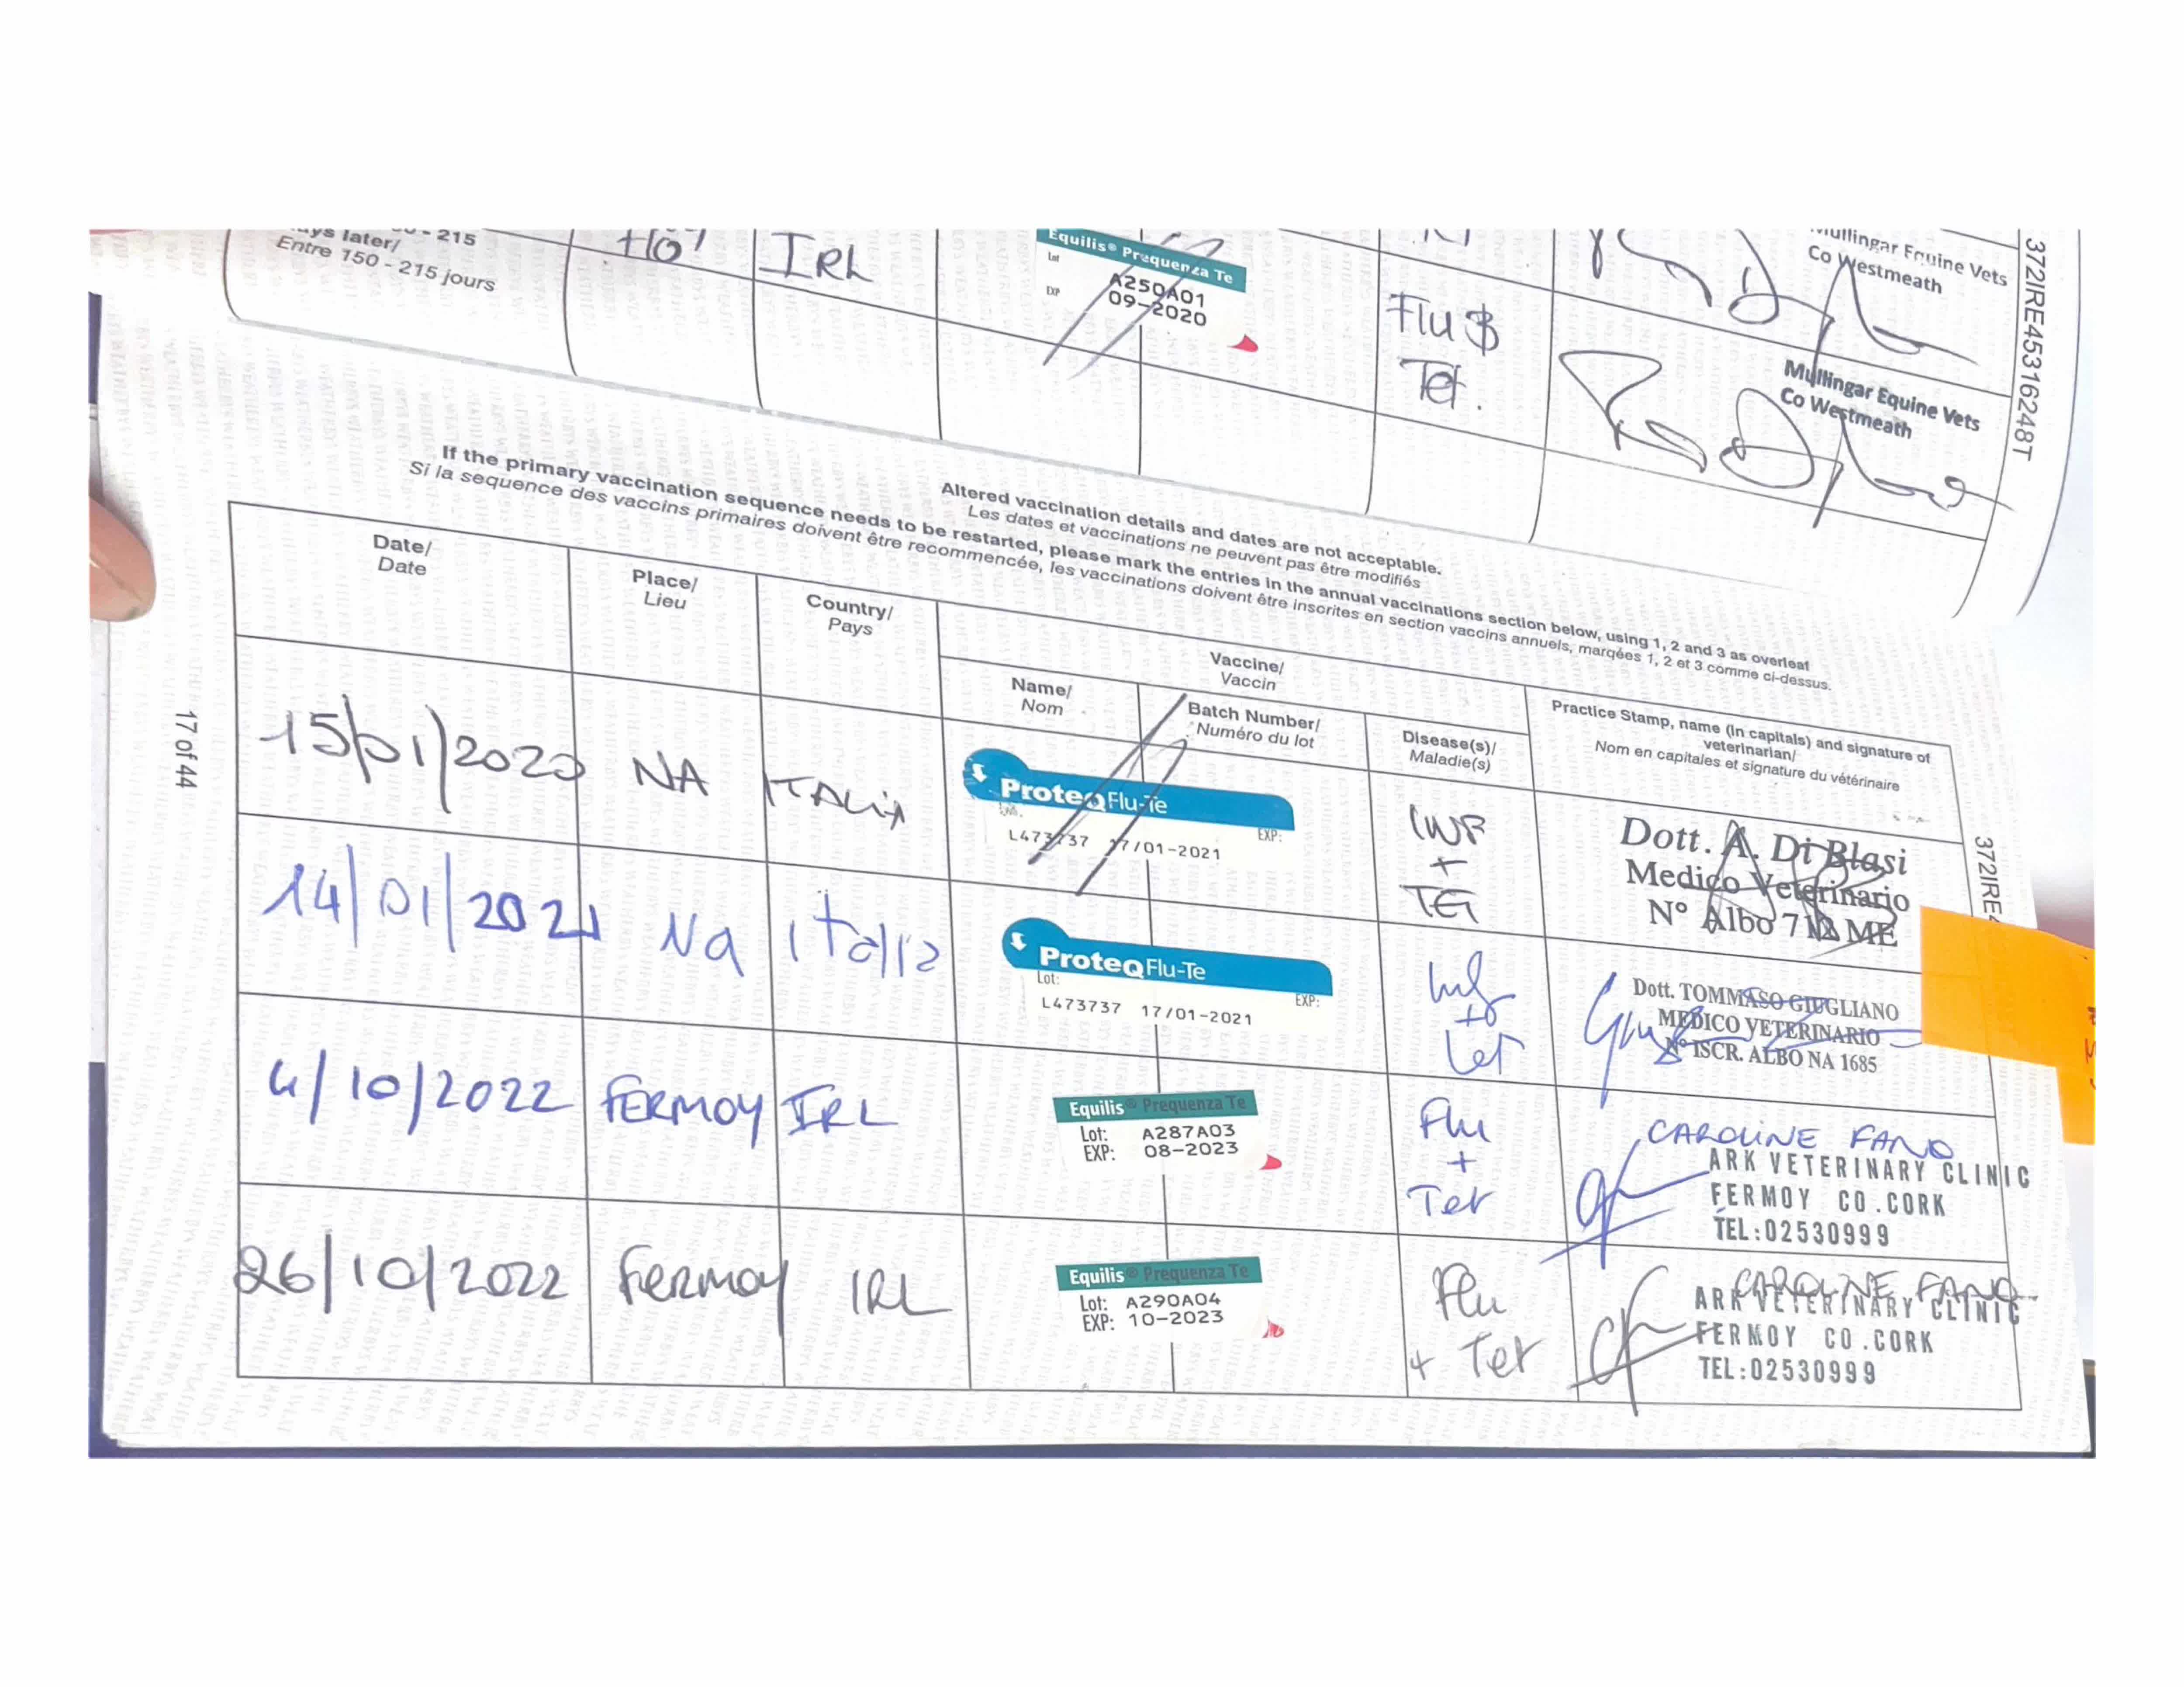 - 215
ys later/
Entre 150 - 215 jours
IRL
Equilis® Prequenza Te
Lot
A250A01
EXP
09-2020
Flu &
Tet.
Mullingar Equine Vets
Co Westmeath
Mullingar Equine Vets
Co Westmeath
372IRE45316248T
Altered vaccination details and dates are not acceptable.
Les dates et vaccinations ne peuvent pas être modifiés
If the primary vaccination sequence needs to be restarted, please mark the entries in the annual vaccinations section below, using 1, 2 and 3 as overleaf
Si la sequence des vaccins primaires doivent être recommencée, les vaccinations doivent être inscrites en section vaccins annuels, marqées 1, 2 et 3 comme ci-dessus.
Date/
Date
Place/
Lieu
Country/
Pays
Vaccine/
Vaccin
Name/
Nom
Batch Number/
Numéro du lot
Disease(s)/
Maladie(s)
Practice Stamp, name (In capitals) and signature of
veterinarian/
Nom en capitales et signature du vétérinaire
15/01/2020
NA
ITALIA
ProteqFlu-Te
EXP:
L473737 17/01-2021
INF
+
TET
Dott. A. Di Blasi
Medico Veterinario
N° Albo 712 ME
14/01/2021
Na
Italia
ProteqFlu-Te
Lot:
EXP:
L473737 17/01-2021
Inf
to
tet
Dott. TOMMASO GIUGLIANO
MEDICO VETERINARIO
N° ISCR. ALBO NA 1685
4/10/2022
FERMOY
IRL
Equilis® Prequenza Te
Lot: A287A03
EXP: 08-2023
Flu
+
Tet
CAROLINE FANO
ARK VETERINARY CLINIC
FERMOY CO.CORK
TEL:02530999
26/10/2022
Fermoy
IRL
Equilis® Prequenza Te
Lot: A290A04
EXP: 10-2023
Flu
+ Tet
CAROLINE FANO
ARK VETERINARY CLINIC
FERMOY CO.CORK
TEL:02530999
17 of 44
372IRE4